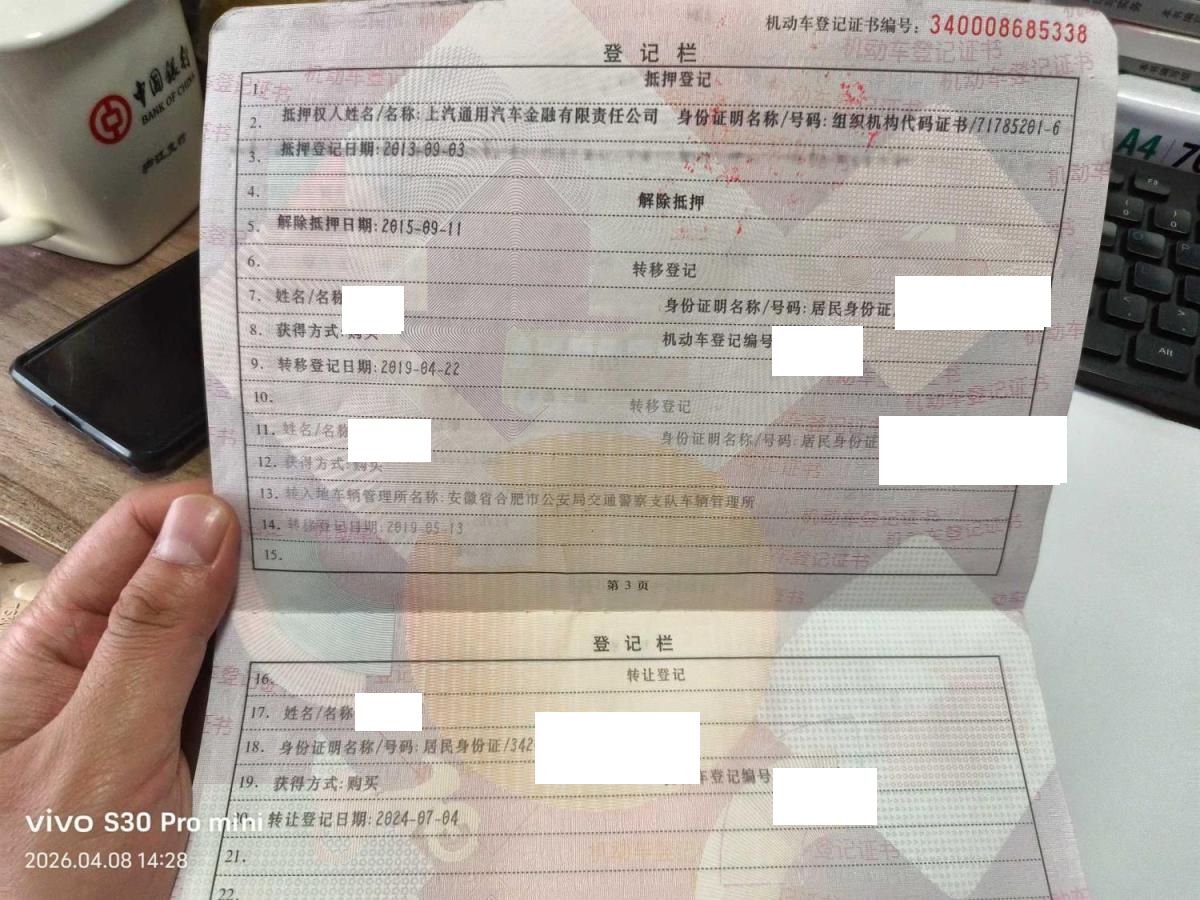 机动车登记证书编号：340008685338
登记栏
1. 抵押登记
2. 抵押权人姓名/名称:上汽通用汽车金融有限责任公司 身份证明名称/号码:组织机构代码证书/71785201-6
3. 抵押登记日期:2013-09-03
4. 解除抵押
5. 解除抵押日期:2015-09-11
6. 转移登记
7. 姓名/名称 身份证明名称/号码:居民身份证
8. 获得方式:购买 机动车登记编号
9. 转移登记日期:2019-04-22
10. 转移登记
11. 姓名/名称 身份证明名称/号码:居民身份证
12. 获得方式:购买
13. 转入地车辆管理所名称:安徽省合肥市公安局交通警察支队车辆管理所
14. 转移登记日期:2019-05-13
15.
第 3 页
登记栏
16. 转让登记
17. 姓名/名称
18. 身份证明名称/号码:居民身份证/342
19. 获得方式:购买 车登记编号
20. 转让登记日期:2024-07-04
21.
22.
中国银行
BANK OF CHINA
A4
Alt
vivo S30 Pro mini
2026.04.08 14:28